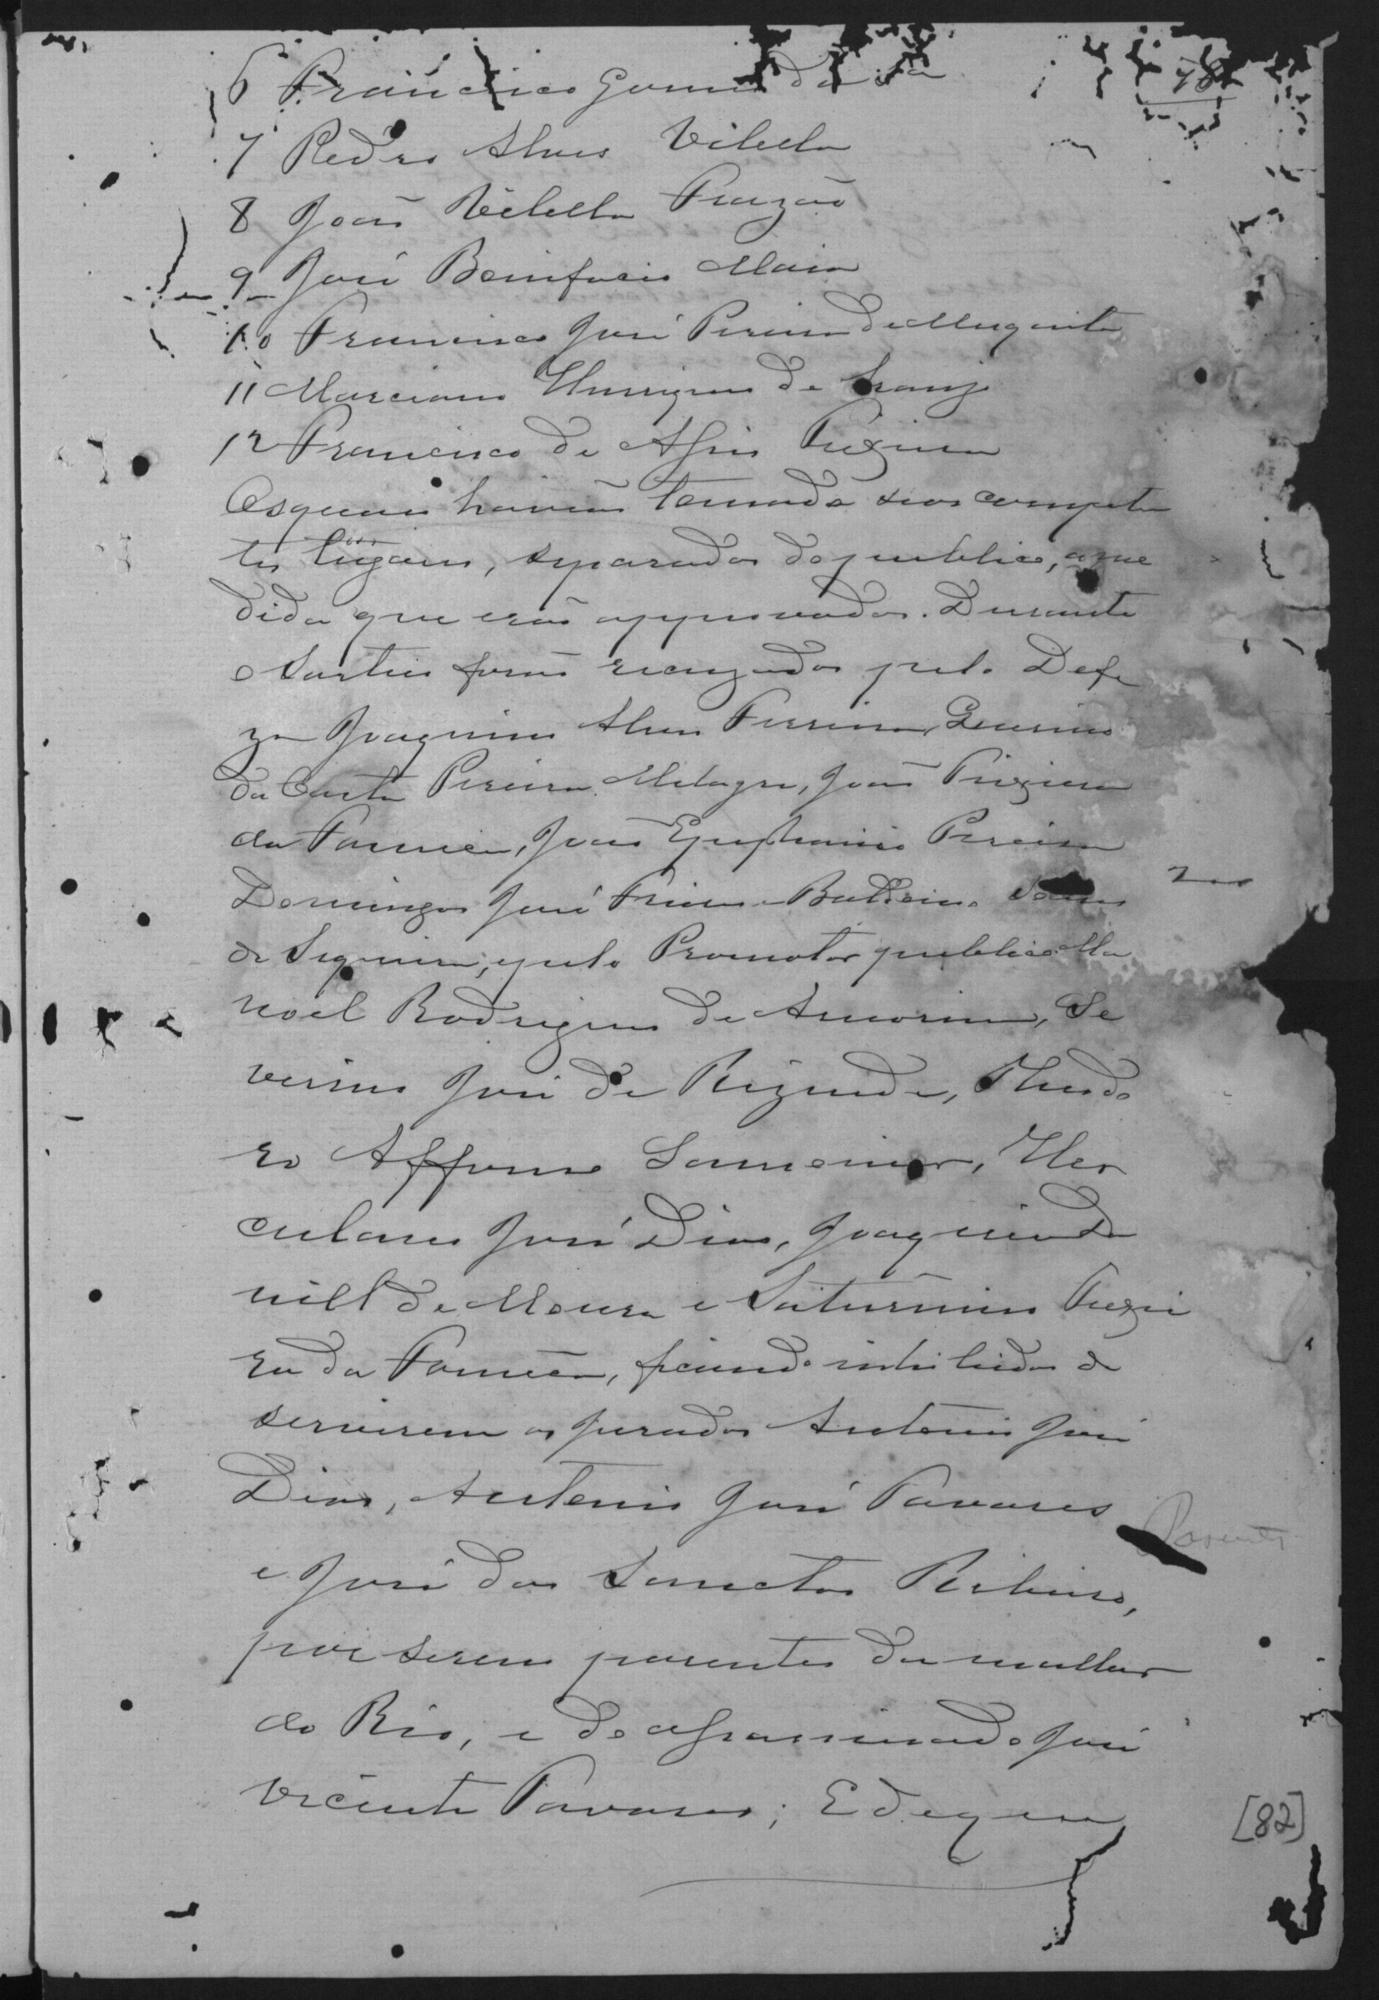 78
6 Francisco Gomes da
7 Pedro Alves Vilella
8 João Vilella Frazão
9 José Bonifacio Maia
10 Francisco José Pereira de Mesquita
11 Marciano Henriques de Araujo
12 Francisco de Assis Teixeira
Os quaes haviam tomado seos competen
tes lugares, separados do publico, a me
dida que erão approvados. Durante
o sorteio forão recuzados pela Defe
za Joaquim Alves Ferreira,
da Costa Pereira Milagre, João Teixeira
da Fonseca, João Epiphanio Pereira
Domingos José
de Siqueira, e pelo Promotor publico Ma
noel Rodrigues de Amorim, Se
verino José de Rezende, Theodo
ro Affonso Lamounier, Her
culano José Dias, Joaquim Da
niel de Moura e Saturnino Teixei
ra da Fonseca, ficando inhibidos de
servirem os jurados Antonio José
Dias, Antonio José Tavares
e José dos Sanctos Ribeiro,
Parentes
por serem parentes da mulher
do Réo, e do assassinado José
Vicente Tavares; E de que
[82]